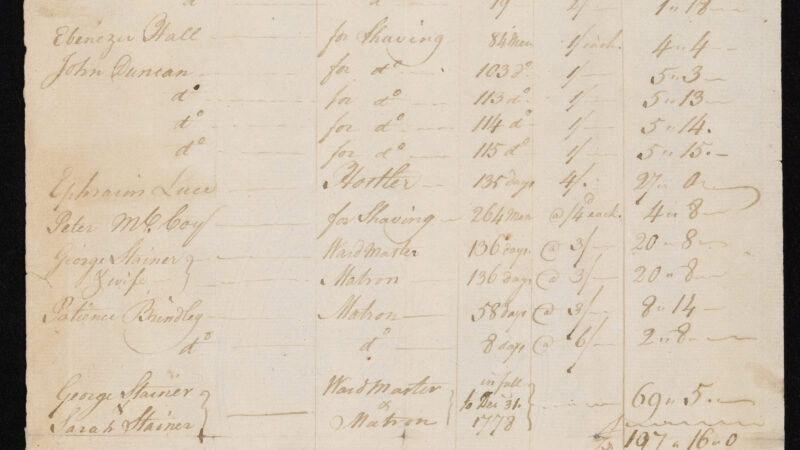 d° 19 2/- 1 " 18 -
Ebenezer Hall for Shaving 84 Men 1/ each. 4 " 4 -
John Duncan for d° 103 d° 1/- 5 " 3 -
d° for d° 113 d° 1/- 5 " 13 -
d° for d° 114 d° 1/- 5 " 14.
d° for d° 115 d° 1/- 5 " 15. -
Ephraim Luce Hostler 135 days 4/. 27 " 0 -
Peter McCoy for Shaving 264 Men @ /4d each. 4 " 8 -
George Stainer Ward Master 136 days @ 3/- 20 " 8 -
& wife Matron 136 days @ 3/- 20 " 8 -
Patience Brindley Matron 58 days @ 3/- 8 " 14 -
d° d° 8 days @ 6/- 2 " 8 -
George Stainer Ward Master in full 69 " 5. -
& to Dec 31.
Sarah Stainer Matron 1778
197 " 16 " 0